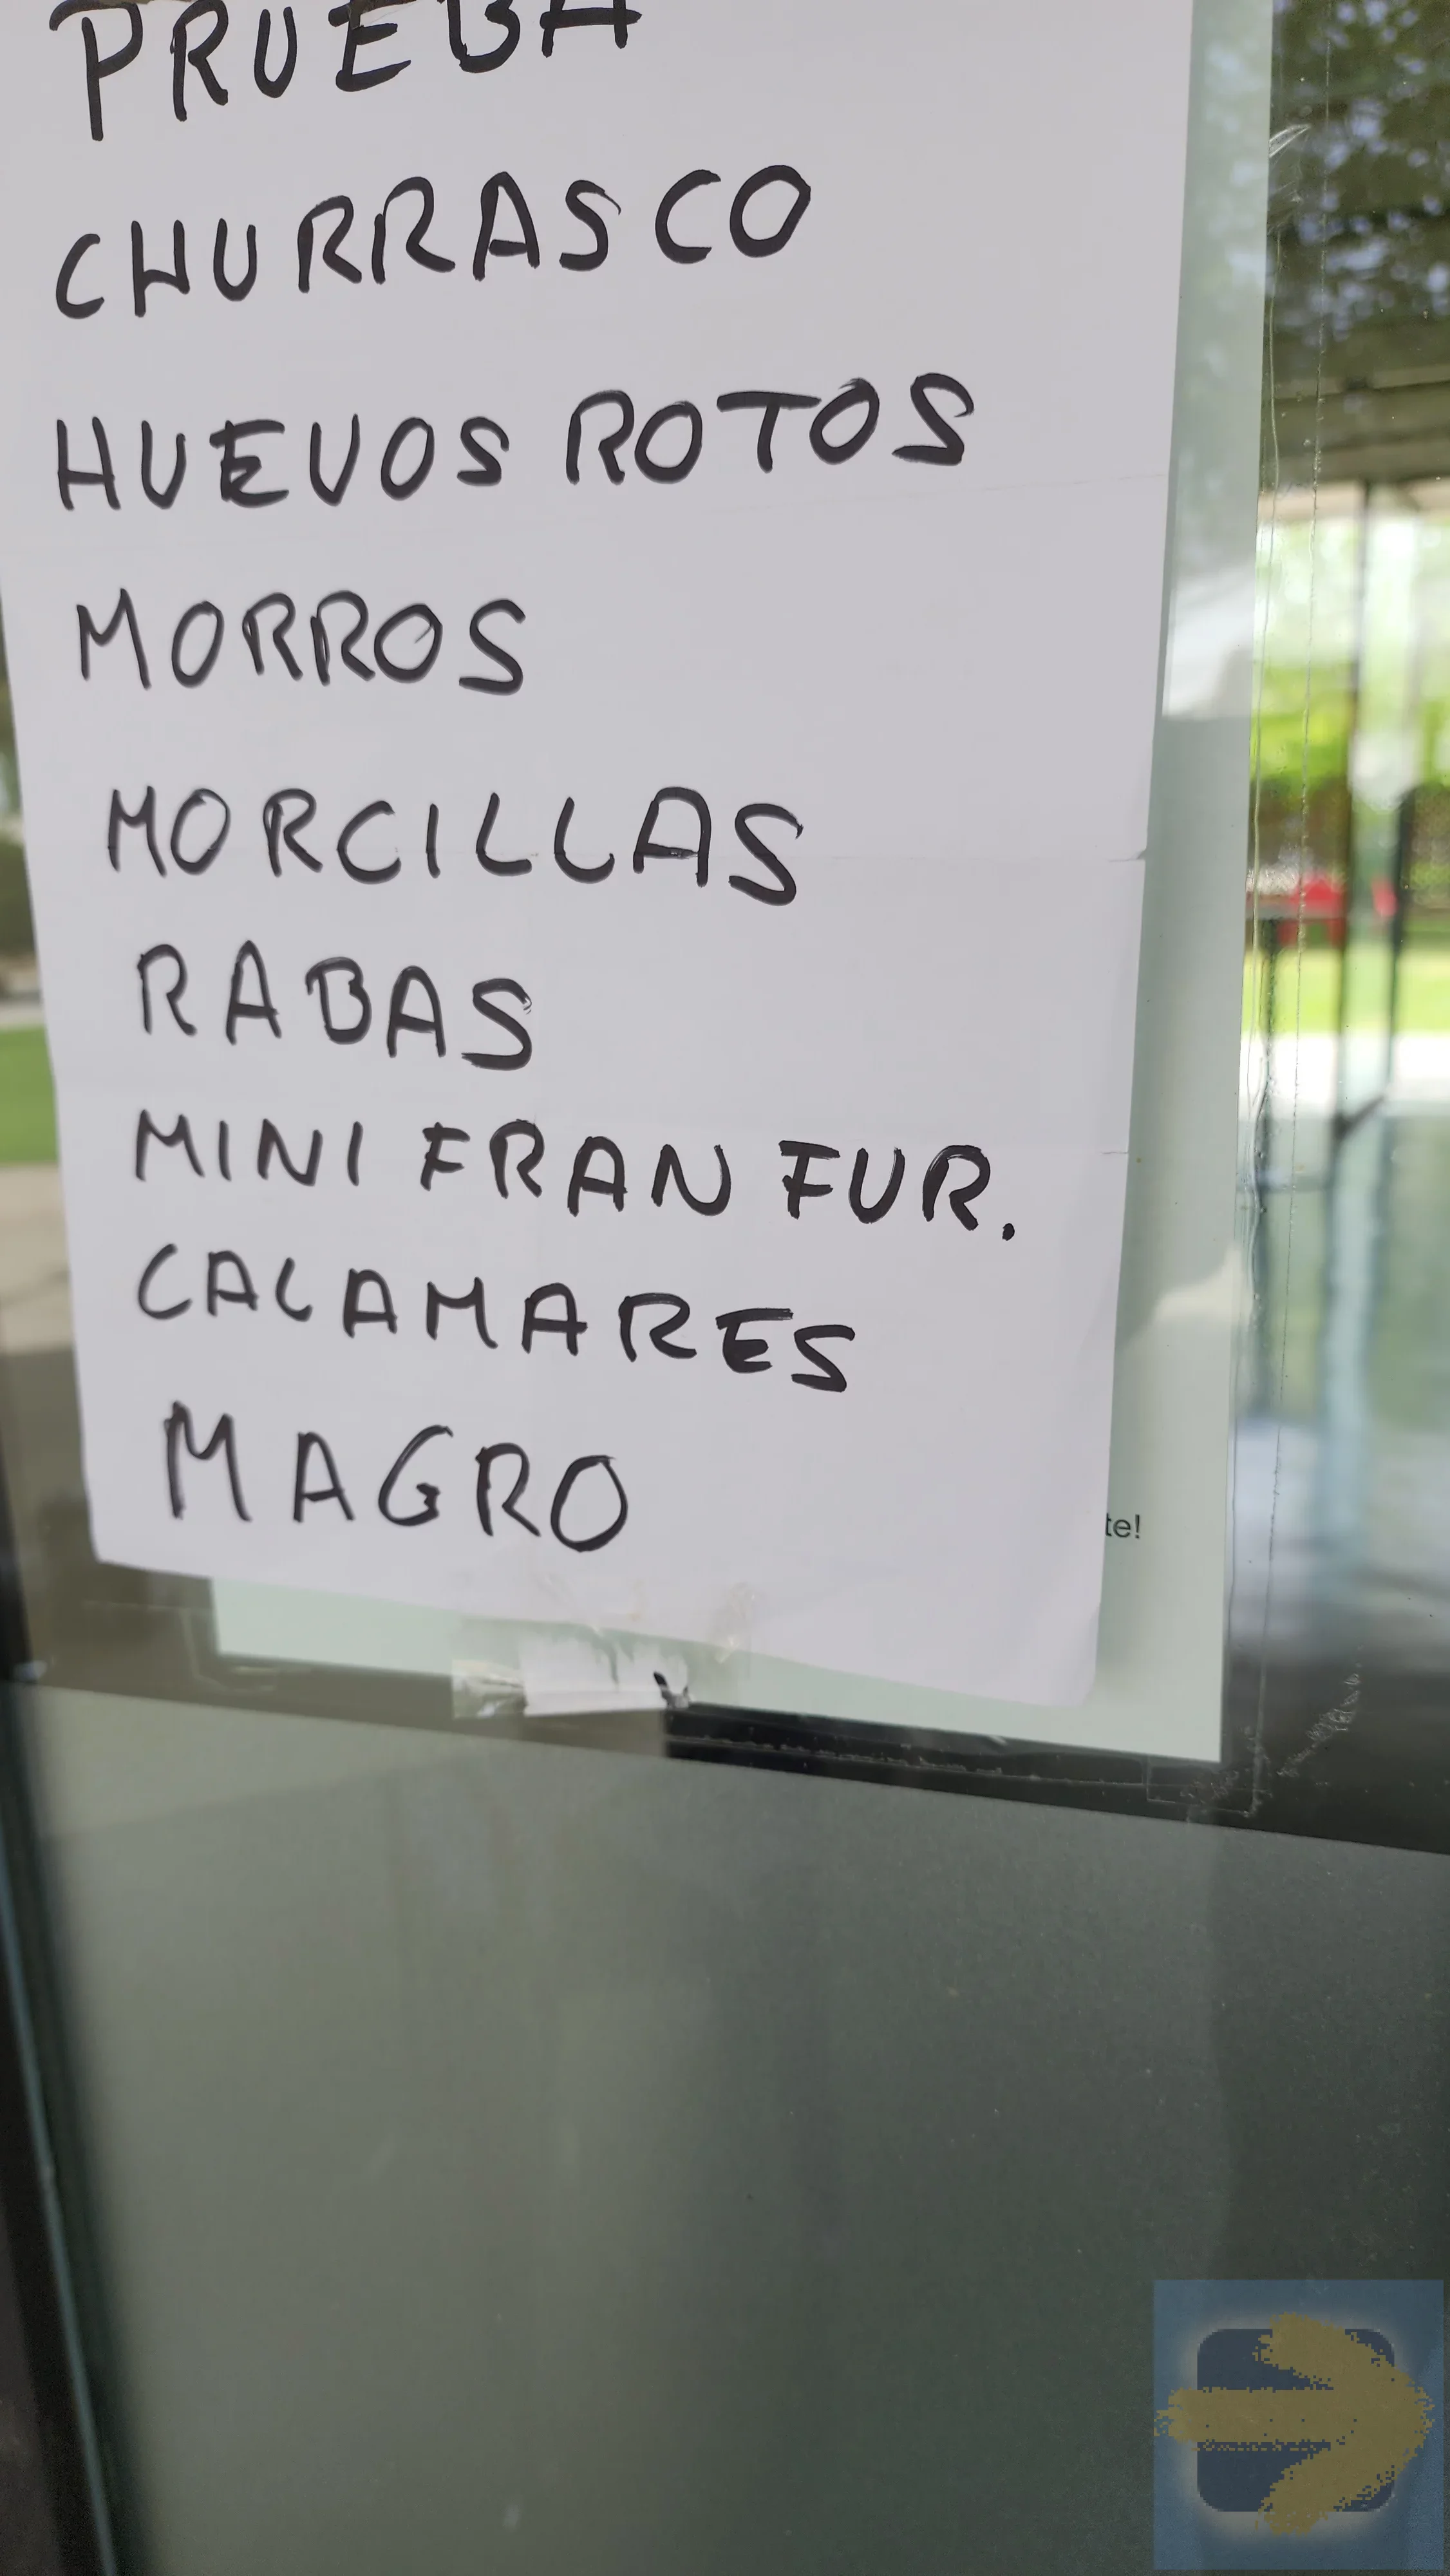 PRUEBA
CHURRASCO
HUEVOS ROTOS
MORROS
MORCILLAS
RABAS
MINI FRANFUR.
CALAMARES
MAGRO
te!